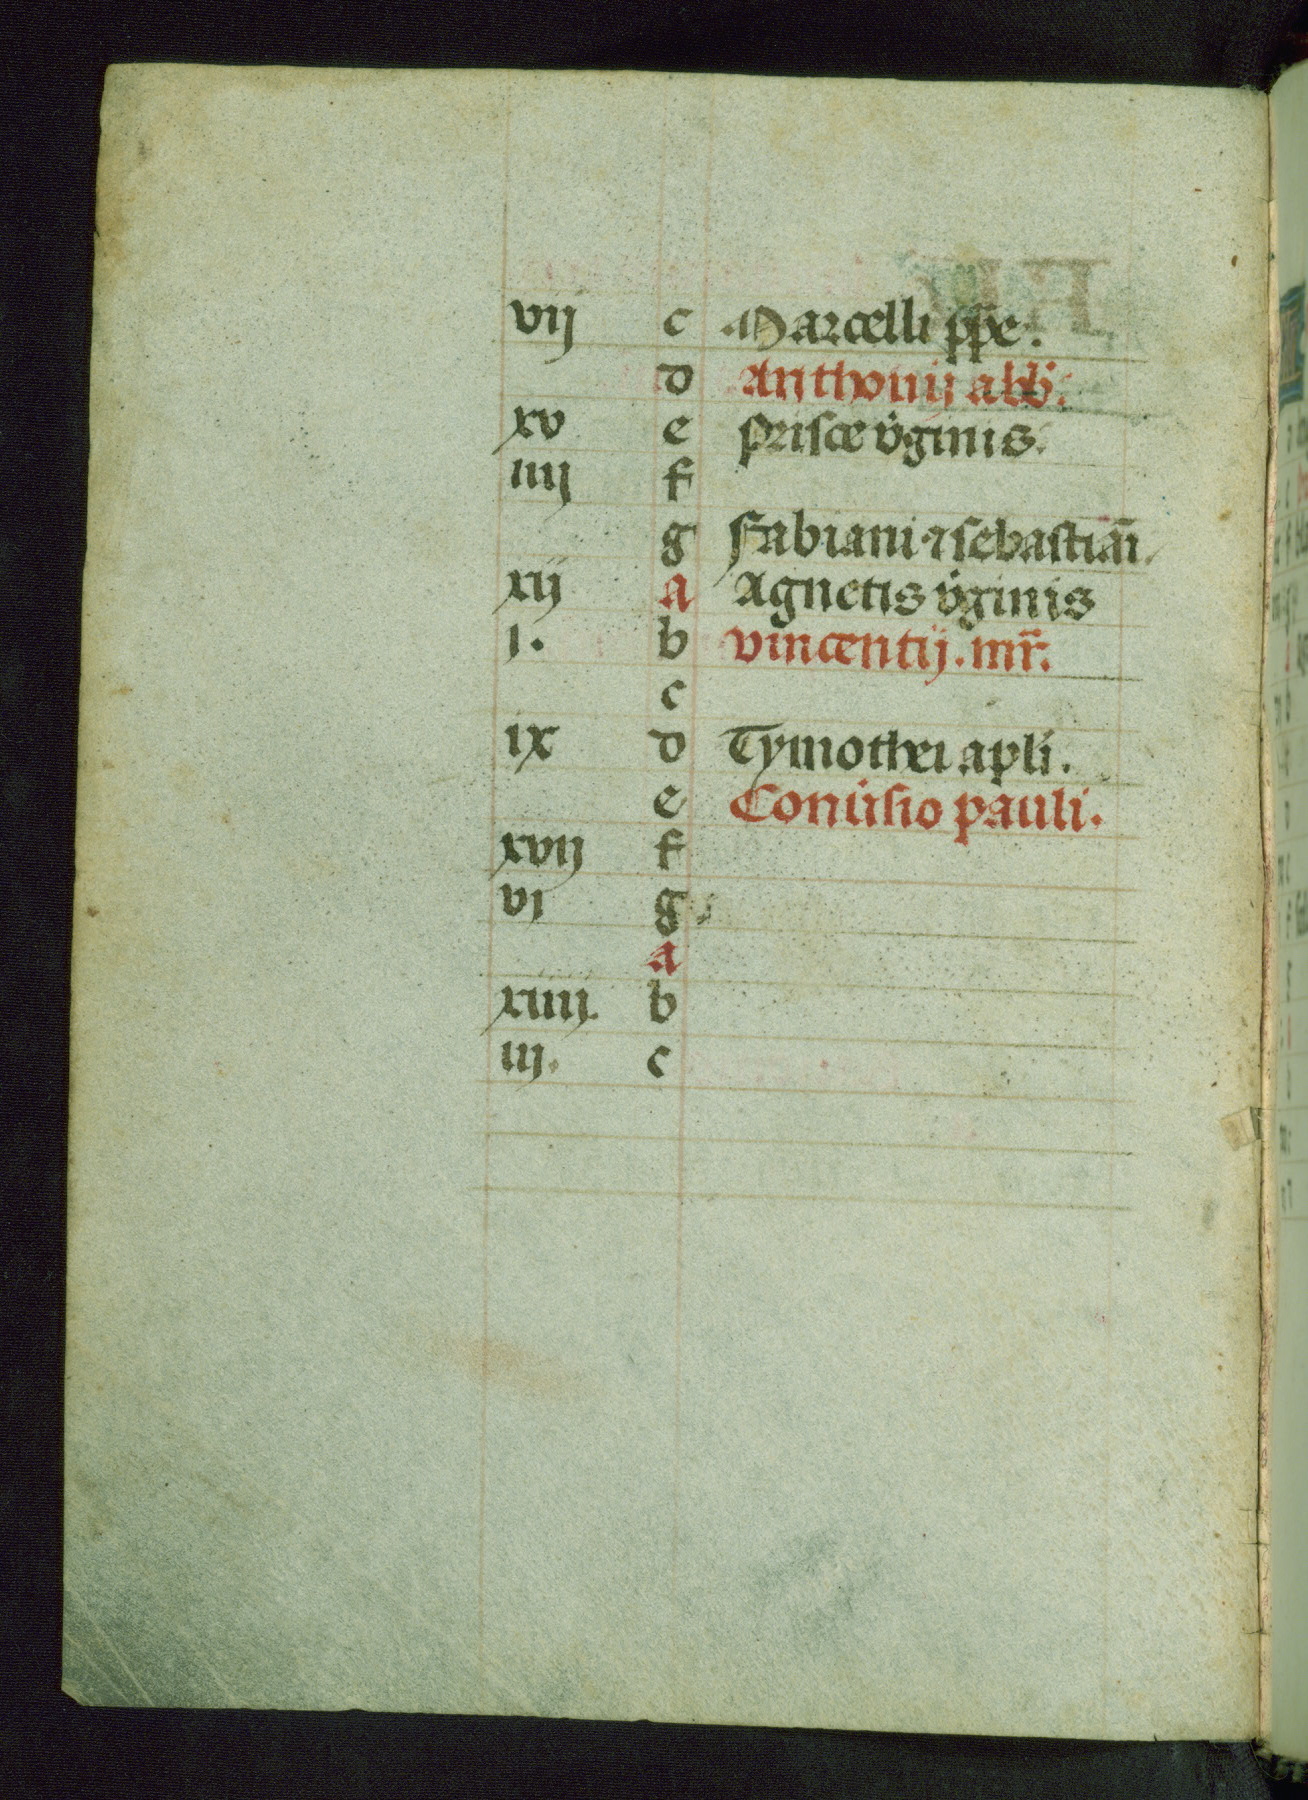 vij c Marcelli pp̄e.
d Anthonij abb̄.
xv e Prisce v̓ginis.
iiij f
g Fabiani ⁊ sebastiāi.
xij a Agnetis v̓ginis
i. b vincentij. mr̄.
c
ix d Tymothei apl̄i.
e Conv̓sio pauli.
xvij f
vi g
a
xiiij. b
iij. c